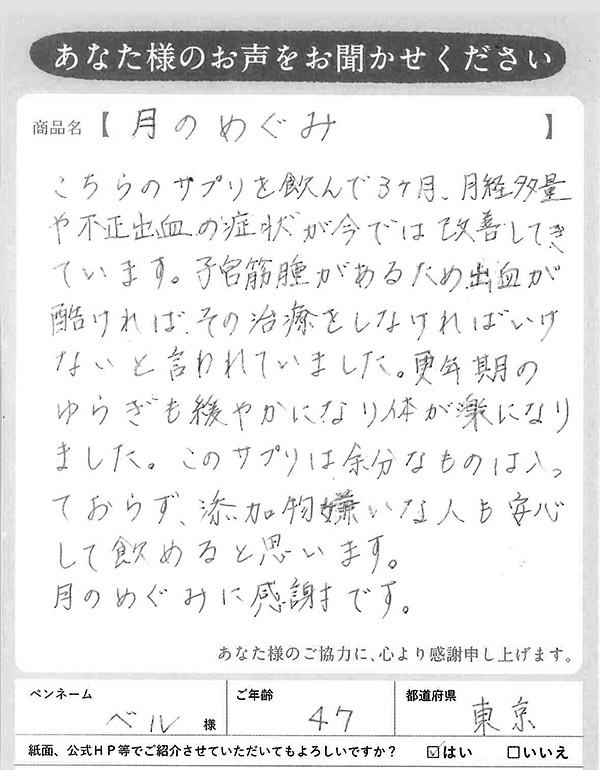 あなた様のお声をお聞かせください
商品名【月のめぐみ】
こちらのサプリを飲んで3ヶ月、月経多量
や不正出血の症状が今では改善してき
ています。子宮筋腫があるため出血が
酷ければ、その治療をしなければいけ
ないと言われていました。更年期の
ゆらぎも緩やかになり体が楽になり
ました。このサプリは余分なものは入っ
ておらず、添加物嫌いな人も安心
して飲めると思います。
月のめぐみに感謝です。
あなた様のご協力に、心より感謝申し上げます。
ペンネーム ご年齢 都道府県
ベル 様 47 東京
紙面、公式HP等でご紹介させていただいてもよろしいですか? ☑はい □いいえ